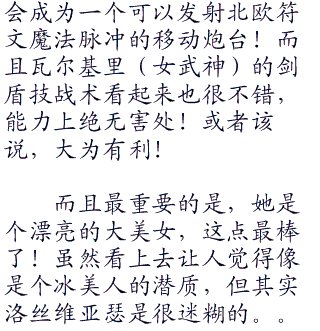 会成为一个可以发射北欧符
文魔法脉冲的移动炮台！而
且瓦尔基里（女武神）的剑
盾技战术看起来也很不错，
能力上绝无害处！或者该
说，大为有利！
而且最重要的是，她是
个漂亮的大美女，这点最棒
了！虽然看上去让人觉得像
是个冰美人的潜质，但其实
洛丝维亚瑟是很迷糊的。。